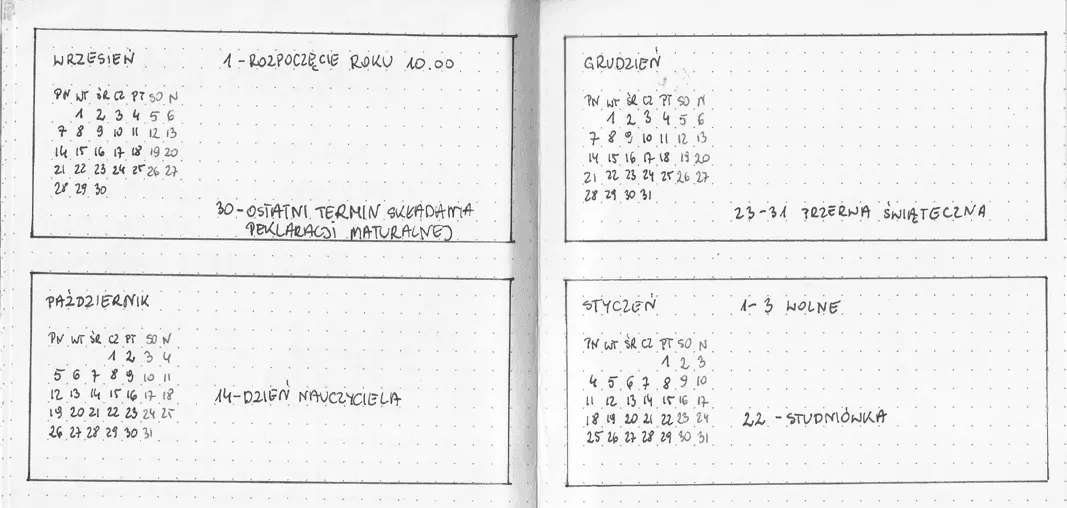 WRZESIEŃ
1 - ROZPOCZĘCIE ROKU 10.00
PN WT ŚR CZ PT SO N
1 2 3 4 5 6
7 8 9 10 11 12 13
14 15 16 17 18 19 20
21 22 23 24 25 26 27
28 29 30
30 - OSTATNI TERMIN SKŁADANIA
DEKLARACJI MATURALNEJ
PAŹDZIERNIK
PN WT ŚR CZ PT SO N
1 2 3 4
5 6 7 8 9 10 11
12 13 14 15 16 17 18
14 - DZIEŃ NAUCZYCIELA
19 20 21 22 23 24 25
26 27 28 29 30 31
GRUDZIEŃ
PN WT ŚR CZ PT SO N
1 2 3 4 5 6
7 8 9 10 11 12 13
14 15 16 17 18 19 20
21 22 23 24 25 26 27
28 29 30 31
23-31 PRZERWA ŚWIĄTECZNA
STYCZEŃ
1-3 WOLNE
PN WT ŚR CZ PT SO N
1 2 3
4 5 6 7 8 9 10
11 12 13 14 15 16 17
18 19 20 21 22 23 24
22 - STUDNIÓWKA
25 26 27 28 29 30 31